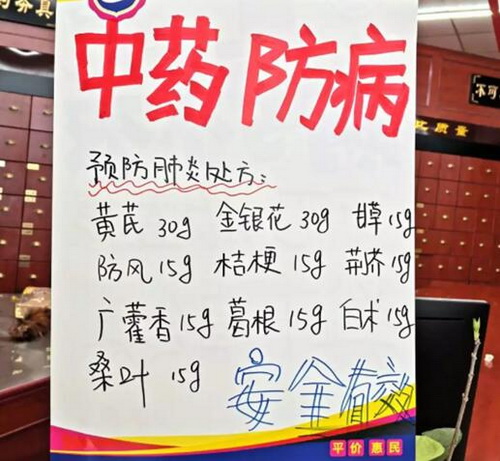 中药防病
预防肺炎处方:
黄芪 30g 金银花 30g 甘草 15g
防风 15g 桔梗 15g 荆芥 15g
广藿香 15g 葛根 15g 白术 15g
桑叶 15g
安全有效
平价惠民
不可
质量